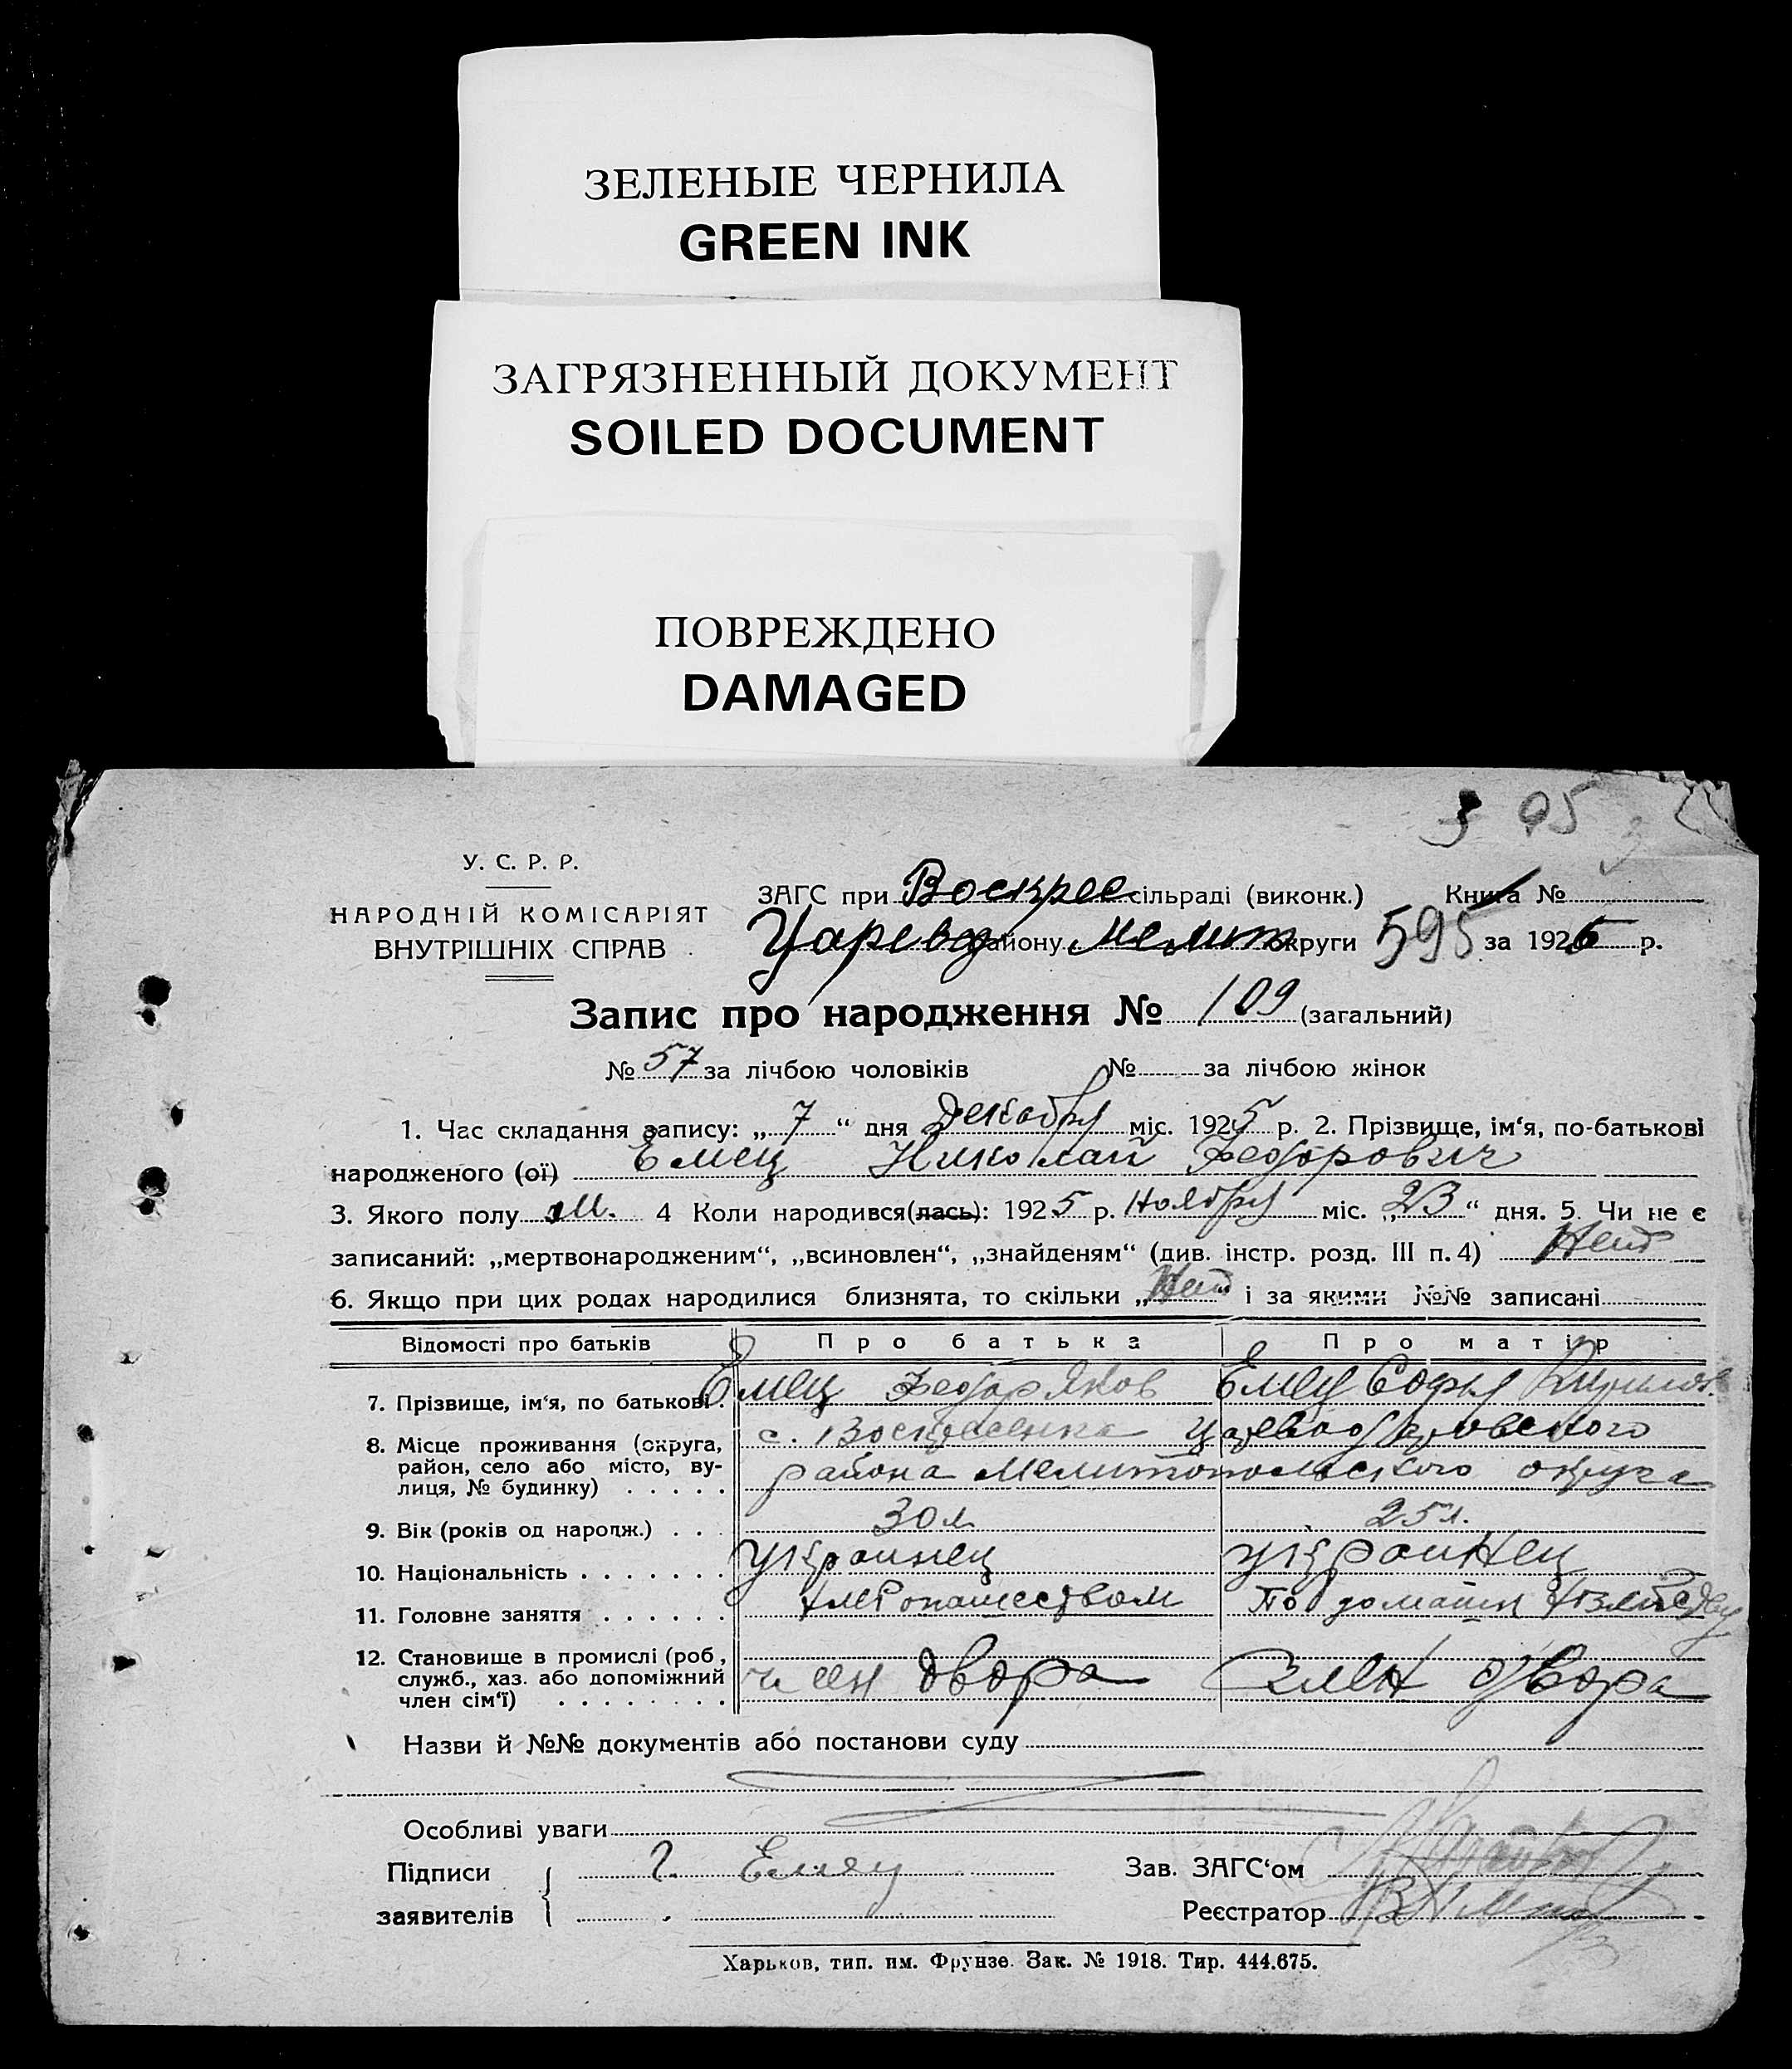 ЗЕЛЕНЫЕ ЧЕРНИЛА
GREEN INK
ЗАГРЯЗНЕННЫЙ ДОКУМЕНТ
SOILED DOCUMENT
ПОВРЕЖДЕНО
DAMAGED
У. С. Р. Р.
НАРОДНІЙ КОМІСАРІЯТ
ВНУТРІШНІХ СПРАВ
ЗАГС при Воскрес сільраді (виконк.) Книга №
Царевод району Мелит округи 595 за 1925 р.
Запис про народження № 109 (загальний)
№ 57 за лічбою чоловіків № за лічбою жінок
1. Час складання запису: „ 7 “ дня Декабря міс. 1925 р. 2. Прізвище, ім‘я, по-батькові
народженого (ої) Емец Николай Федорович
3. Якого полу М. 4 Коли народився(лась): 1925 р. Ноября міс. „ 23 “ дня. 5. Чи не є
записаний: „мертвонародженим“, „всиновлен“, „знайденям“ (див. інстр. розд. III п. 4) Нет
6. Якщо при цих родах народилися близнята, то скільки „ Нет “ і за якими №№ записані
Відомості про батьків Про батька Про матір
7. Прізвище, ім‘я, по батькові. Емец Федор Яков Емец Софья Кирилов.
8. Місце проживання (округа, с. Воскресенка Царевоодаровского
район, село або місто, ву- района Мелитопольского округа
лиця, № будинку)
9. Вік (років од народж.) 30 л 25 л.
10. Національність украинец украинец
11. Головне заняття хлебопашеством По домашн
12. Становище в промислі (роб,
служб., хаз. або допоміжний член двора член двора
член сім‘ї)
Назви й №№ документів або постанови суду
Особливі уваги
Підписи Емец Зав. ЗАГС‘ом
заявителів Реєстратор
Харьков, тип. им. Фрунзе. Зак. № 1918. Тир. 444.675.